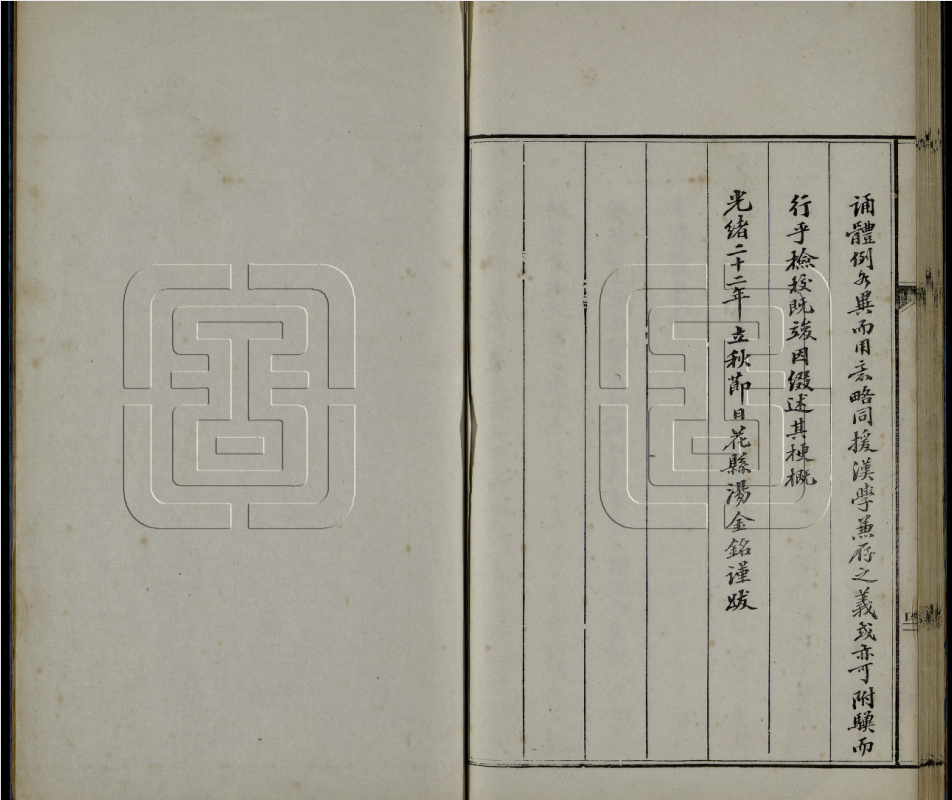 誦體例各異而用意略同援漢學兼存之義或亦可附驥而
行乎檢校既竣因綴述其梗概
光緒二十二年立秋節日花縣湯金銘謹跋